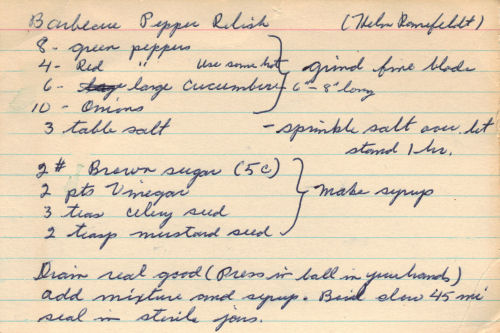 Barbecue Pepper Relish (Thelm Romsfeldt)
8- green peppers
4- Red " Use some hot grind fine blade
6- large cucumbers 6"-8" long
10- Onions
3 table salt - sprinkle salt over. let
stand 1 hr.
2# Brown sugar (5c)
2 pts Vinegar Make syrup
3 teas celery seed
2 teasp mustard seed
Drain real good (Press in ball in your hands)
add mixture and syrup. Boil slow 45 mi
seal in sterile jars.